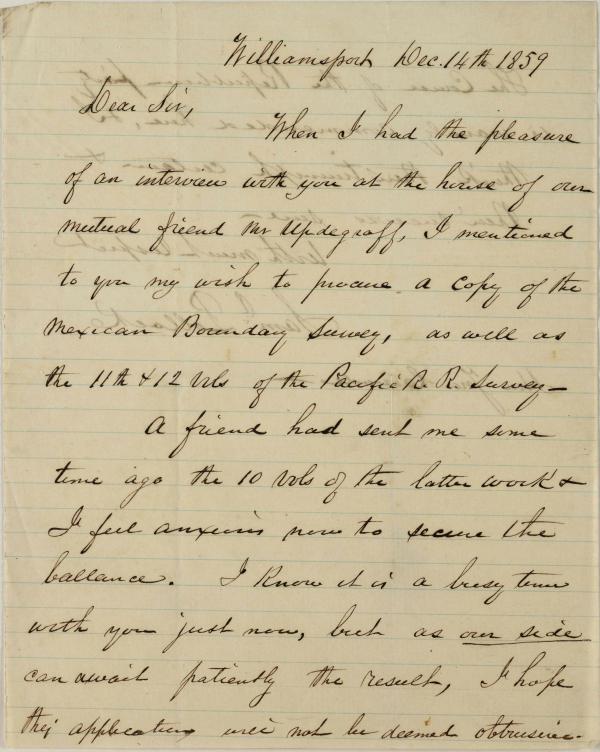 Williamsport Dec. 14th 1859
Dear Sir,
When I had the pleasure
of an interview with you at the house of our
mutual friend Mr Updegraff, I mentioned
to you my wish to procure a copy of the
Mexican Boundary Survey, as well as
the 11th & 12 Vols of the Pacific R. R. Survey—
A friend had sent me some
time ago the 10 Vols of the latter work &
I feel anxious now to secure the
ballance. I know it is a busy time
with you just now, but as our side
can await patiently the result, I hope
this application will not be deemed obtrusive.